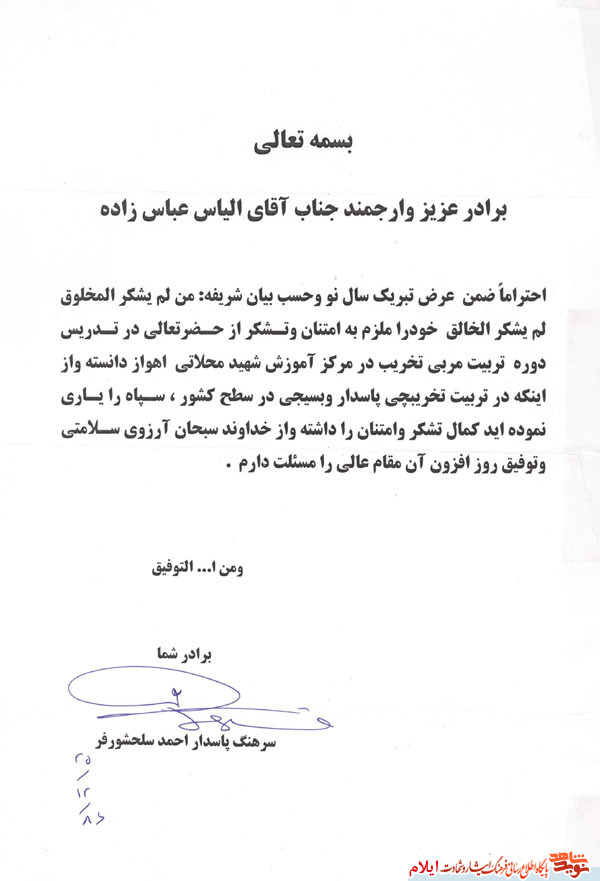 بسمه تعالی
برادر عزیز وارجمند جناب آقای الیاس عباس زاده
احتراماً ضمن عرض تبریک سال نو وحسب بیان شریفه: من لم یشکر المخلوق
لم یشکر الخالق خودرا ملزم به امتنان وتشکر از حضرتعالی در تدریس
دوره تربیت مربی تخریب در مرکز آموزش شهید محلاتی اهواز دانسته واز
اینکه در تربیت تخریبچی پاسدار وبسیجی در سطح کشور ، سپاه را یاری
نموده اید کمال تشکر وامتنان را داشته واز خداوند سبحان آرزوی سلامتی
وتوفیق روز افزون آن مقام عالی را مسئلت دارم .
ومن ا... التوفیق
برادر شما
سرهنگ پاسدار احمد سلحشورفر
۲۵
/
۱۲
/
۸۶
نوید شاهد پایگاه اطلاع رسانی فرهنگ ایثار و شهادت ایلام